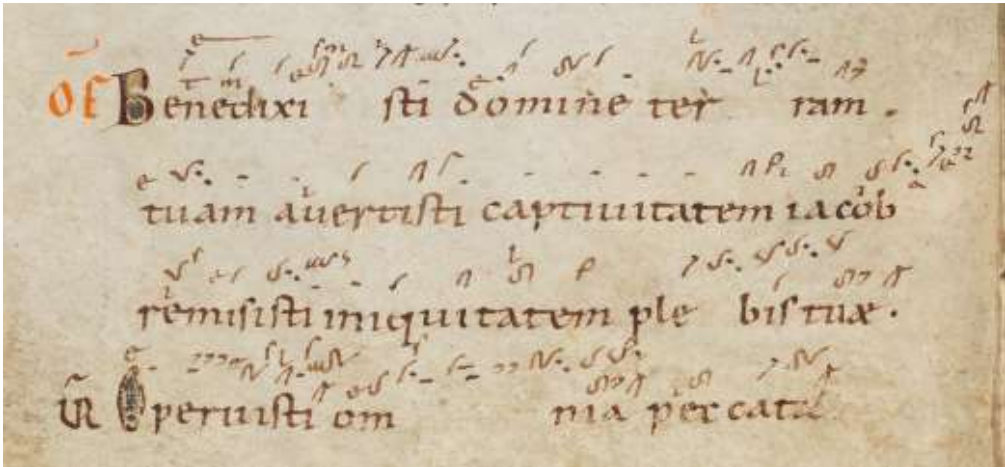 OF Benedixi sti domine ter ram.
tuam avertisti captivitatem iacob
remisisti iniquitatem ple bis tuæ.
V Operuisti om nia peccata